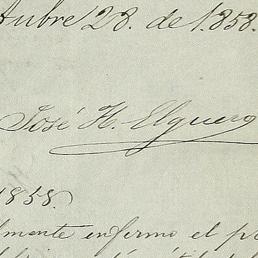 tubre 28. de 1.858.
José H. Elguero
1858.
lmente enfermo el p